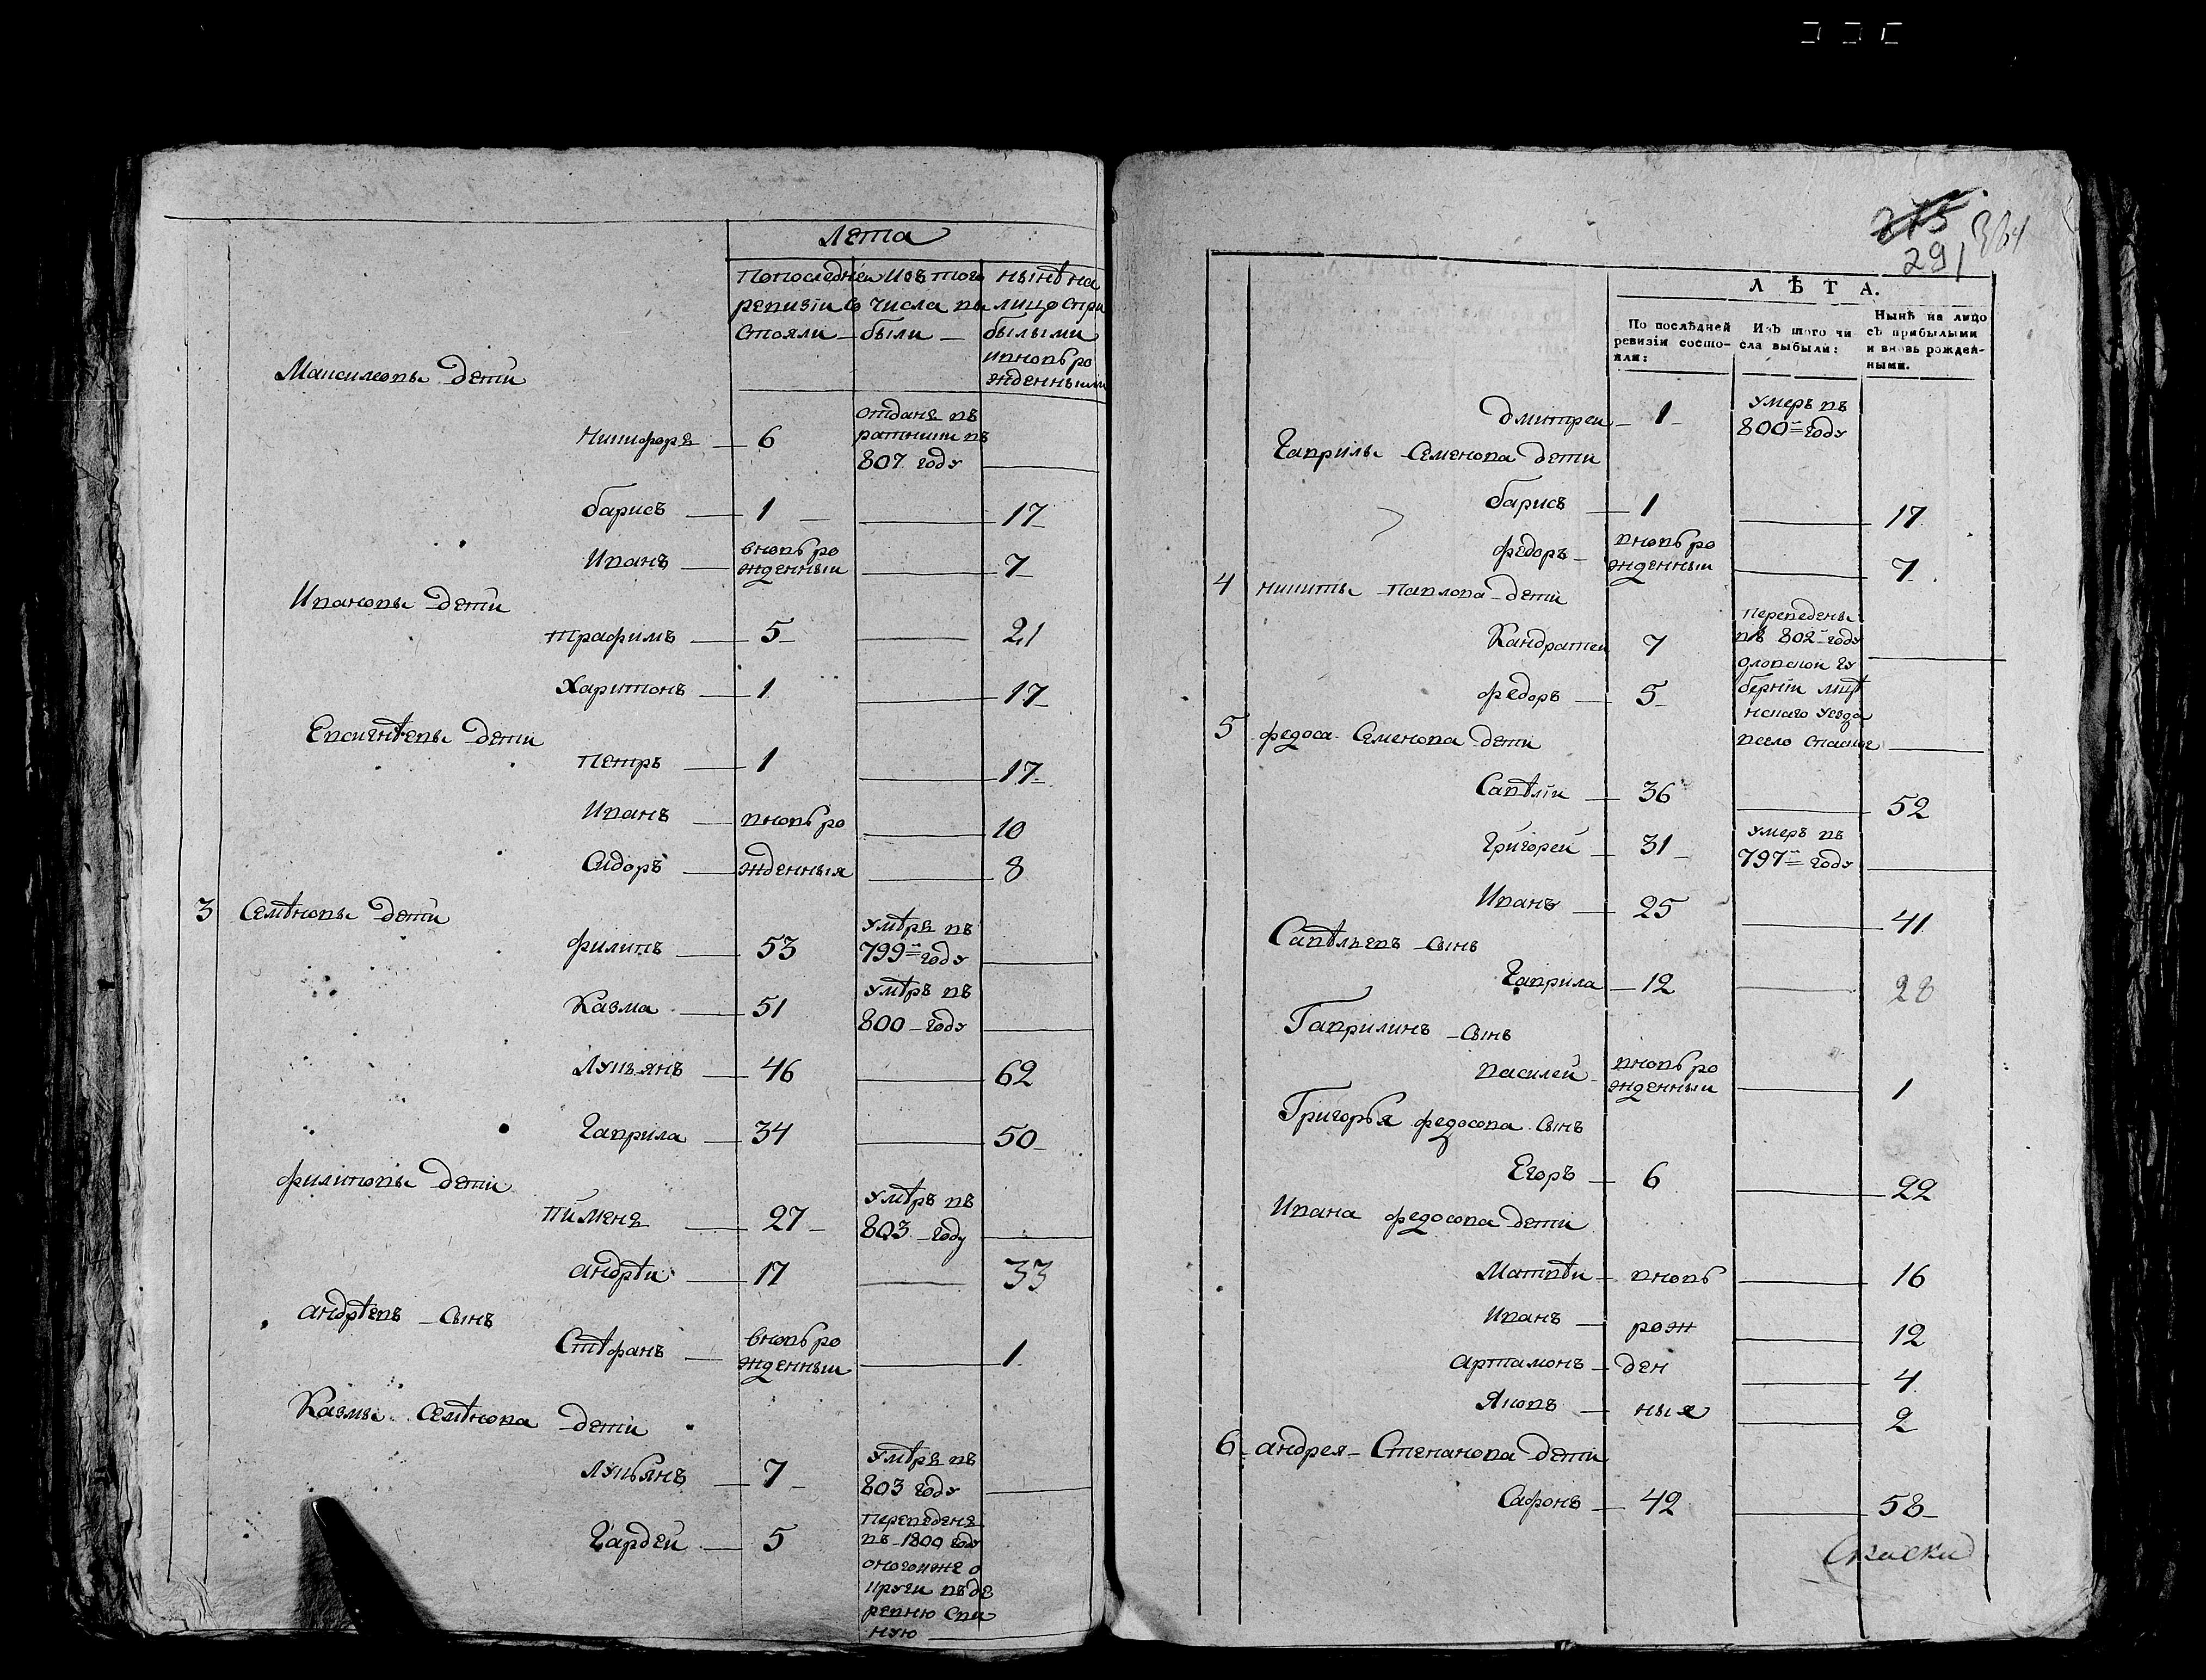 Лета
По последнеи
ревизiи со
стояли
Изъ того
числа вы
были
ныне на
лицо с при
былыми
и вновь ро
жденными
Максимовы дети
Никифоръ 6 отданъ въ
ратники въ
807 году
барисъ 1 17
Иванъ вновь ро
жденныи 7
Ивановы дети
трафимъ 5 21
Харитонъ 1 17
Евсигнѣевы дети
петръ 1 17
Иванъ вновь ро 10
Сидоръ жденныя 8
3 Семѣновы дети
филипъ 53 умѣръ въ
799м году
Казма 51 умѣръ въ
800 году
Лукъянъ 46 62
Гаврила 34 50
филиповы дети
пименъ 27 умѣръ въ
803 году
андрѣи 17 33
андрѣевъ сынъ
Стѣфанъ вновь ро
жденныи 1
Казмы Семѣнова дети
Лукьянъ 7 умѣръ въ
803 году
Гардѣй 5 переведенъ
въ 1809 году
оного же о
круги въ де
ревню Сви
ную
275
291
ЛѢТА.
По послѣдней
ревизiи состо-
яли:
Изъ того чи
сла выбыли:
Нынѣ на лицо
съ прибылыми
и вновь рожден-
ными.
дмитреи 1 умеръ въ
800м году
Гаврилы Семенова дети
барисъ 1 17
федоръ вновь ро
жденныи 7
4 никиты Павлова дети
Кандратеи 7 переведены
въ 802м году
федоръ 5
5 федоса Семенова дети
всело Спаское
Савѣлiи 36 52
Григорей 31 умеръ въ
797м году
Иванъ 25 41
Савѣльевъ сынъ
Гаврила 12 28
Гаврилинъ сынъ
василей вновь ро
жденныи 1
Григорья федосова сынъ
Егоръ 6 22
Ивана федосова дети
Матвѣи вновь 16
Иванъ рож 12
артамонъ ден 4
Яковъ ныя 2
6 андрея Степанова дети
Сафонъ 42 58